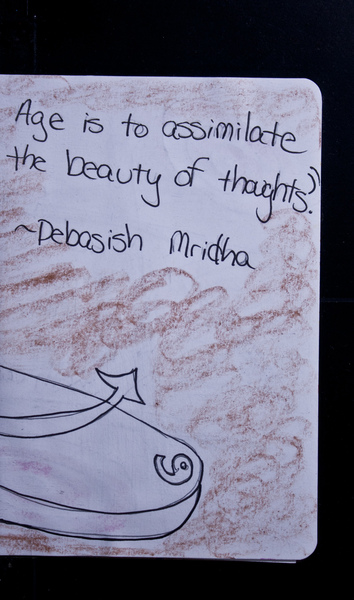 Age is to assimilate
the beauty of thoughts."
~Debasish Mridha